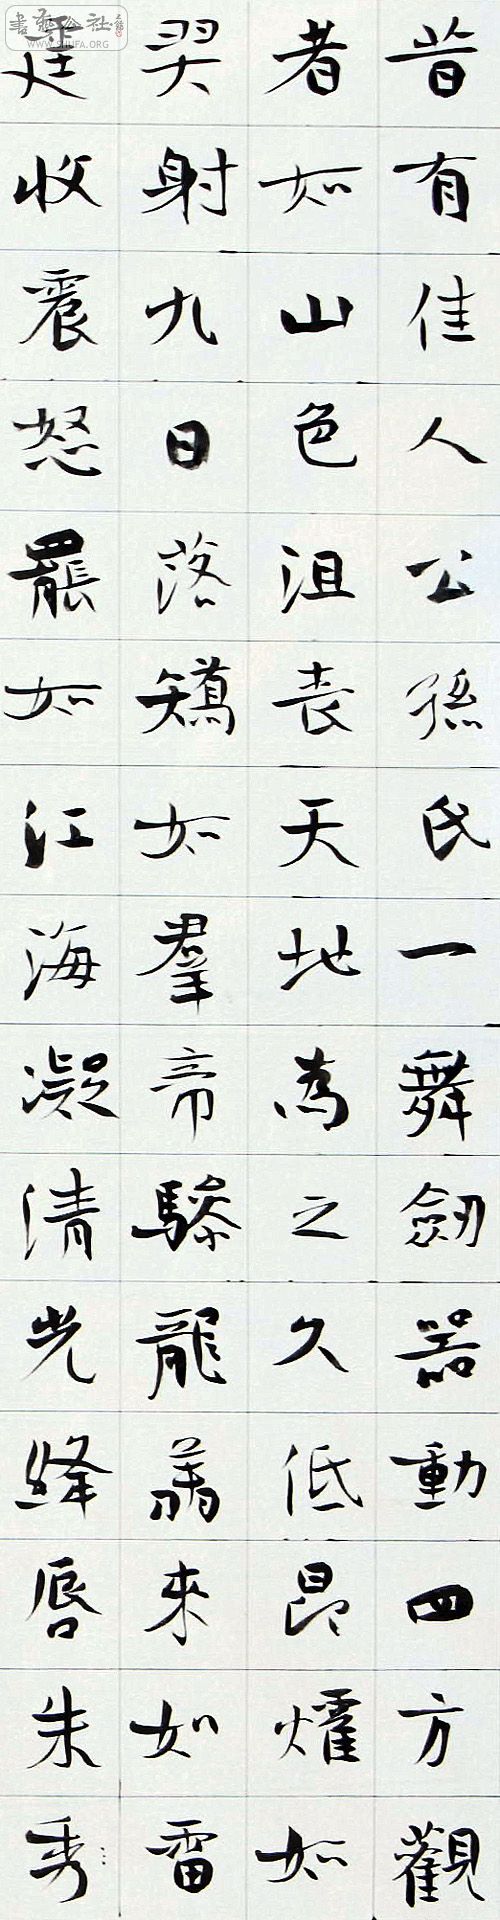 WWW.SHUFA.ORG
昔有佳人公孫氏一舞劍器動四方觀
者如山色沮喪天地為之久低昂㸌如
羿射九日落矯如羣帝驂龍翔來如雷
霆收震怒罷如江海凝清光絳唇朱秀